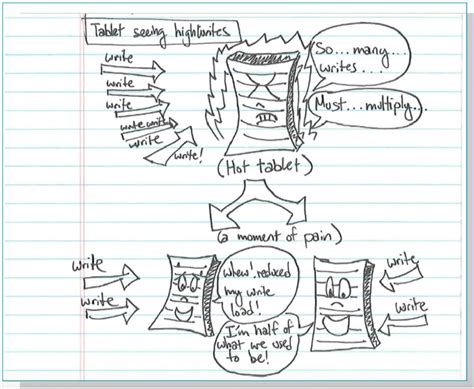 Tablet seeing high writes.
write
write
write
write write
write
write!
So...many...
writes...
Must...multiply...
(Hot tablet)
(a moment of pain)
write
write
whew! reduced
my write
load!
I'm half of
what we used
to be!
write
write